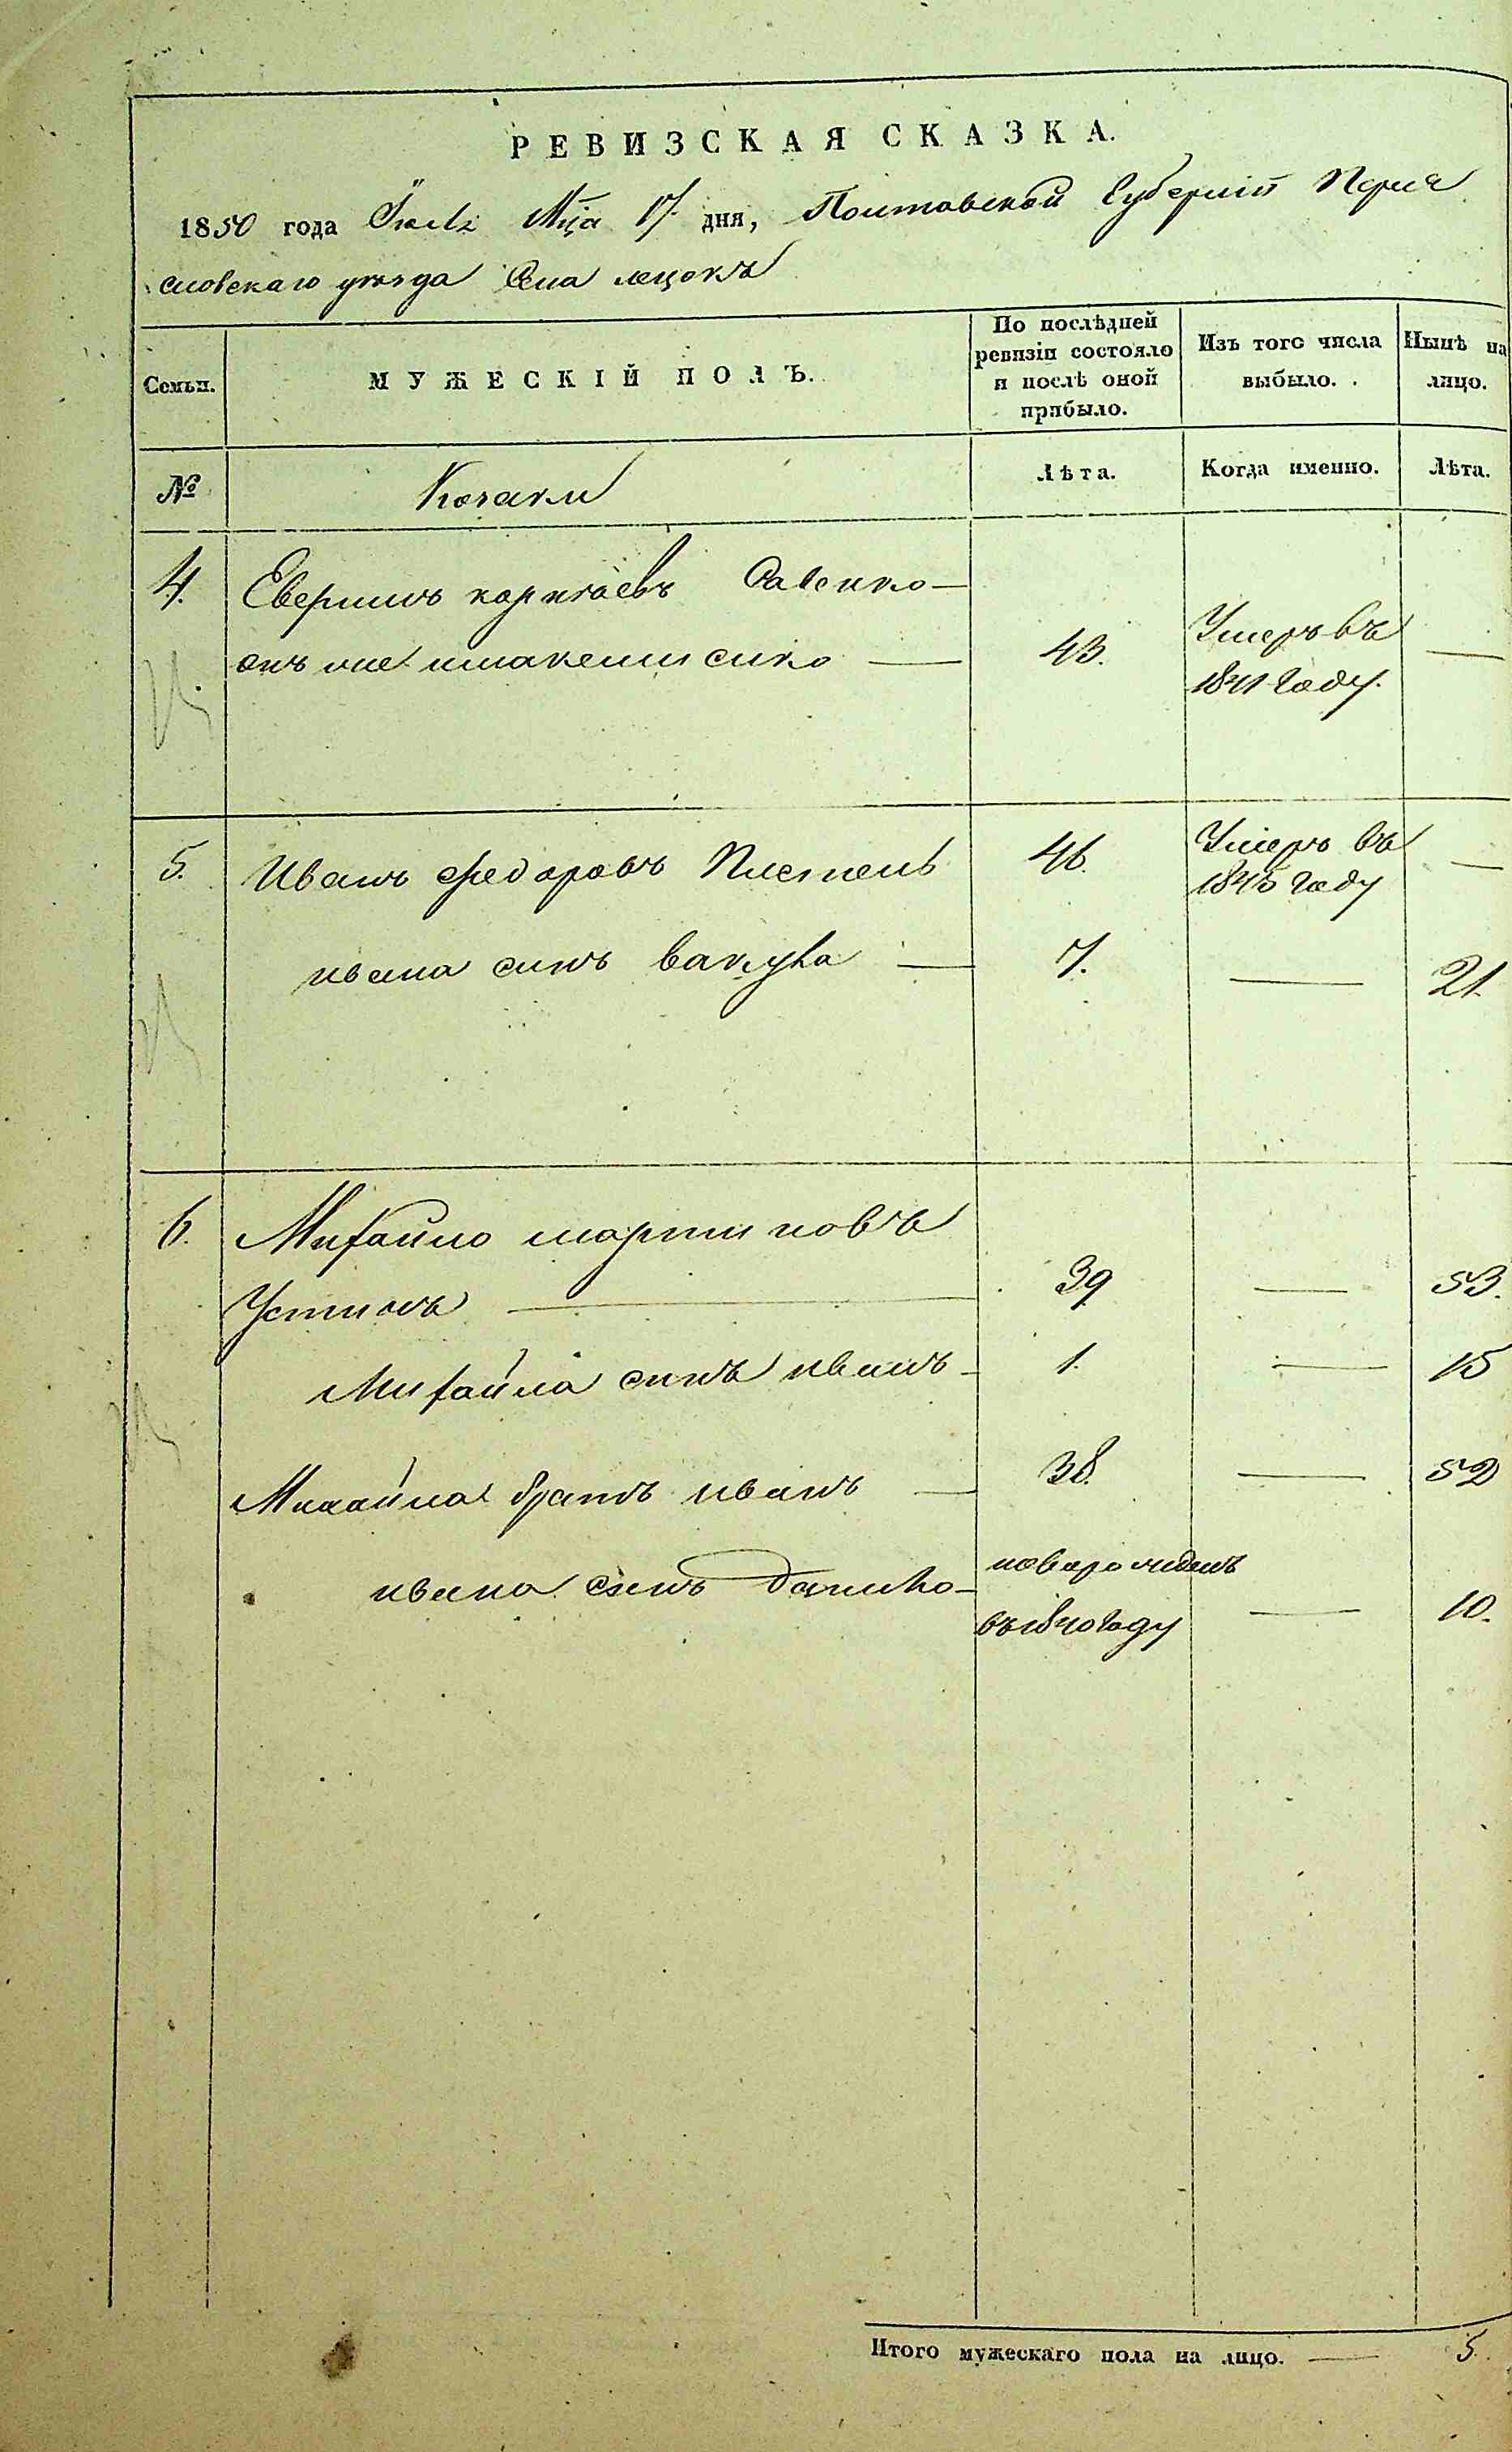 РЕВИЗСКАЯ СКАЗКА.
1850 года Июля Мца 17. дня, Полтавской Губернiи Пере
словскаго уезда Села лецокъ
Семьи.
МУЖЕСКІЙ ПОЛЪ.
По послѣдней
ревизіи состояло
и послѣ оной
прибыло.
Изъ того числа
выбыло.
Нынѣ на
лицо.
№
Козаки
Лѣта.
Когда именно.
Лѣта.
4. Савенко —
онъ же — 43. Умеръ въ —
1841 году.
5. Иванъ федоровъ Плетень 46. Умеръ въ —
1845 году
ивана синъ вакула — 7. — 21
6. Михайло мартиновъ
Устимъ — 39 — 53.
Михайла синъ иванъ — 1. — 15
Михайла братъ иванъ — 38. — 52
ивана синъ данило — новарожденъ
въ 1840 году — 10.
Итого мужескаго пола на лицо. — 5.